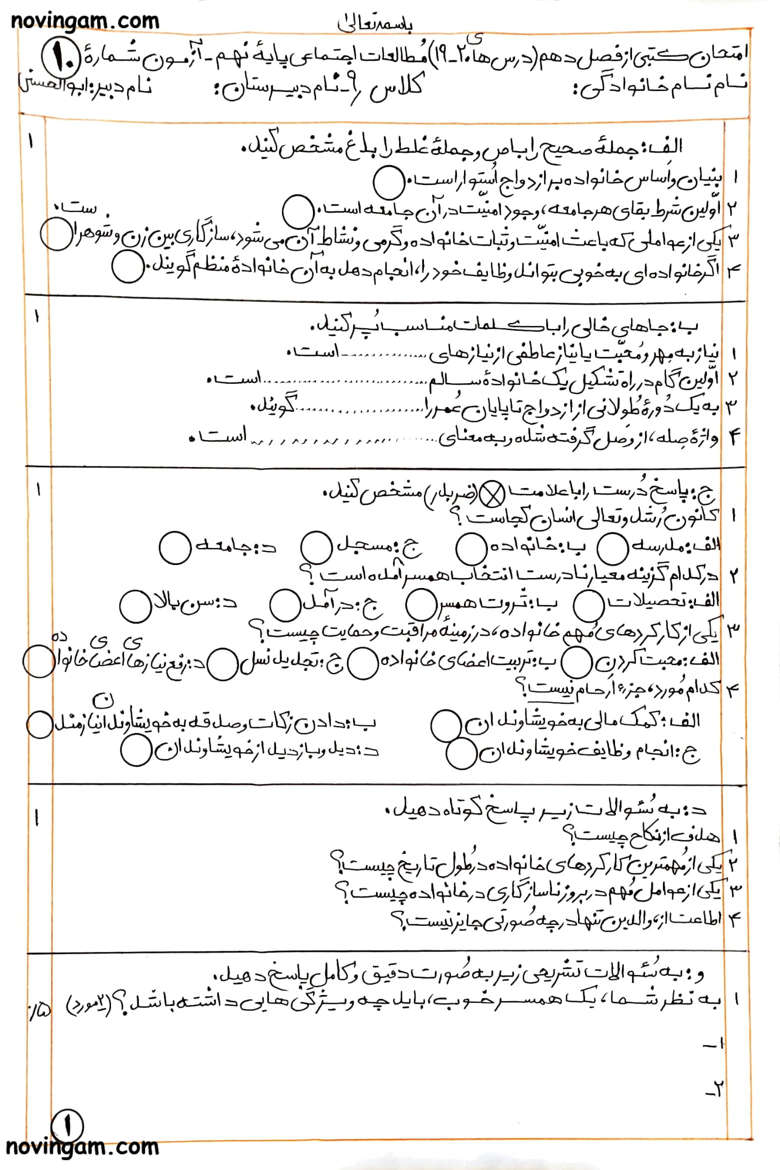 novingam.com
باسمه‌تعالی
امتحان کتبی از فصل دهم (درس‌های ۲۰-۱۹) مُطالعات اجتماعی پایهٔ نهم - آزمون شمارهٔ ۱۰
نام نام خانوادگی: کلاس ۹/ - نام دبیرستان: نام دبیر: ابوالحسنی
الف: جملهٔ صحیح را با ص و جملهٔ غلط را با غ مشخص کنید. ۱
۱ بنیان و اَساس خانواده بر ازدواج اُستوار است.
۲ اوّلین شرط بقای هر جامعه، وجود امنیّت در آن جامعه است.
۳ یکی از عواملی که باعث امنیّت و ثبات خانواده و گرمی و نشاط آن می‌شود، سازگاری بین زن و شوهر است.
۴ اگر خانواده‌ای به خوبی بتواند وظایف خود را، انجام دهد به آن خانوادهٔ منظم گویند.
ب: جاهای خالی را با کلمات مناسب پُر کنید. ۱
۱ نیاز به مِهر و مُحبّت یا نیاز عاطفی از نیازهای .............. است.
۲ اوّلین گام در راه تشکیل یک خانوادهٔ سالم .............. است.
۳ به یک دُورهٔ طولانی از ازدواج تا پایان عُمر را .............. گویند.
۴ واژهٔ صِله، از وَصل گرفته شده و به معنای .............. است.
ج: پاسخ دُرست را با علامت ⊗ (ضربدر) مشخص کنید. ۱
۱ کانون رُشد و تعالی انسان کجاست؟
الف: مدرسه ب: خانواده ج: مسجد د: جامعه
۲ در کدام گزینه معیار نادرست انتخاب همسر آمده است؟
الف: تحصیلات ب: ثروت همسر ج: درآمد د: سن بالا
۳ یکی از کارکردهای مُهم خانواده، در زمینهٔ مراقبت و حمایت چیست؟
الف: محبت کردن ب: تربیت اعضای خانواده ج: تجدید نسل د: رفع نیازهای اعضای خانواده
۴ کدام مُورد، جزء اَرحام نیست؟
الف: کمک مالی به خویشاوندان ب: دادن زکات و صدقه به خویشاوندان نیازمند
ج: انجام وظایف خویشاوندان د: دید و بازدید از خویشاوندان
د: به سُئوالات زیر پاسخ کوتاه دهید. ۱
۱ هدف از نکاح چیست؟
۲ یکی از مُهمترین کارکردهای خانواده در طُول تاریخ چیست؟
۳ یکی از عوامل مُهم در بروز ناسازگاری در خانواده چیست؟
۴ اطاعت از، والدین تنها در چه صُورتی جایز نیست؟
و: به سُئوالات تشریحی زیر به صُورت دقیق و کامل پاسخ دهید.
۱ به نظر شما، یک همسر خوب، باید چه ویژگی‌هایی داشته باشد؟ (۲ مورد) ۰/۵
۱-
۲-
۱
novingam.com